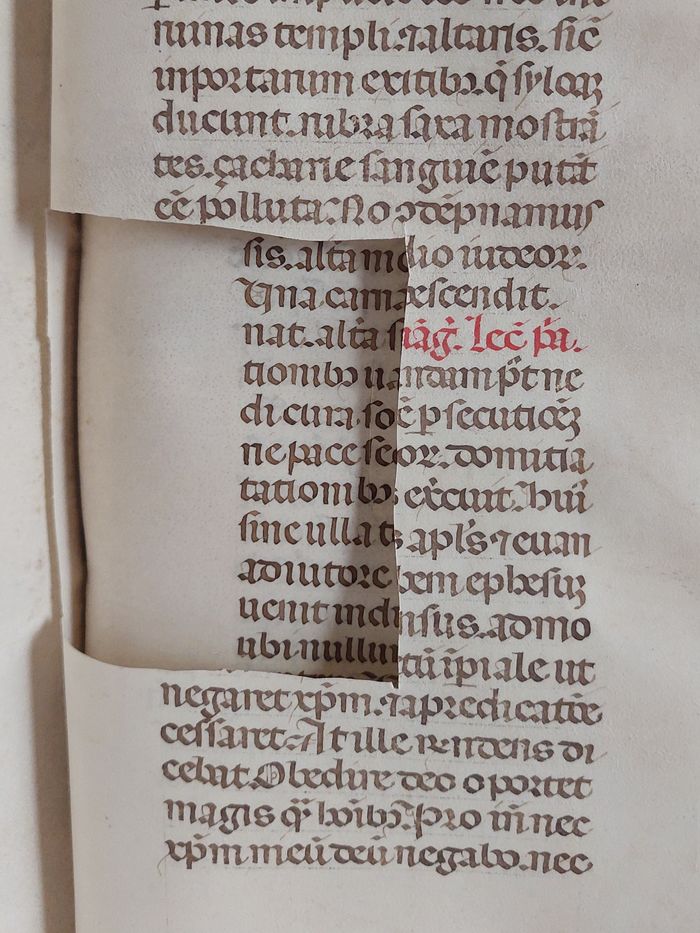 ruinas templi ⁊ altaris. sic̄
inportarum exitibꝫ. q̄ syloaꝫ
ducunt. rubra saxa mostrā
tes. çacharie sanguīe putāt
eē polluta. No ↄdēpnamus
sis. alta m dio iudeor.
Una cam descendit.
nat. alta s māḡ. lec̄ p̄a.
tionibꝫ u andam p̄t ne
di cura. so c̄ ꝑsecutiōeꝫ
ne pace se or. domitia
tationibꝫ ex̄cuit. huī
sine ulla t apl̄s ⁊ euan
adiutore hem ephesiꝫ
uenit in d nsus. ad mo
ubi nullu tū īp̄iale ut
negaret xp̄m. ⁊ a predicatōe
cessaret. At ille rn̄dens di
cebat. Obedire deo oportet
magis q̄ȝ hoībꝫ. Pro īn̄ nec
xp̄m meū deū negabo. nec